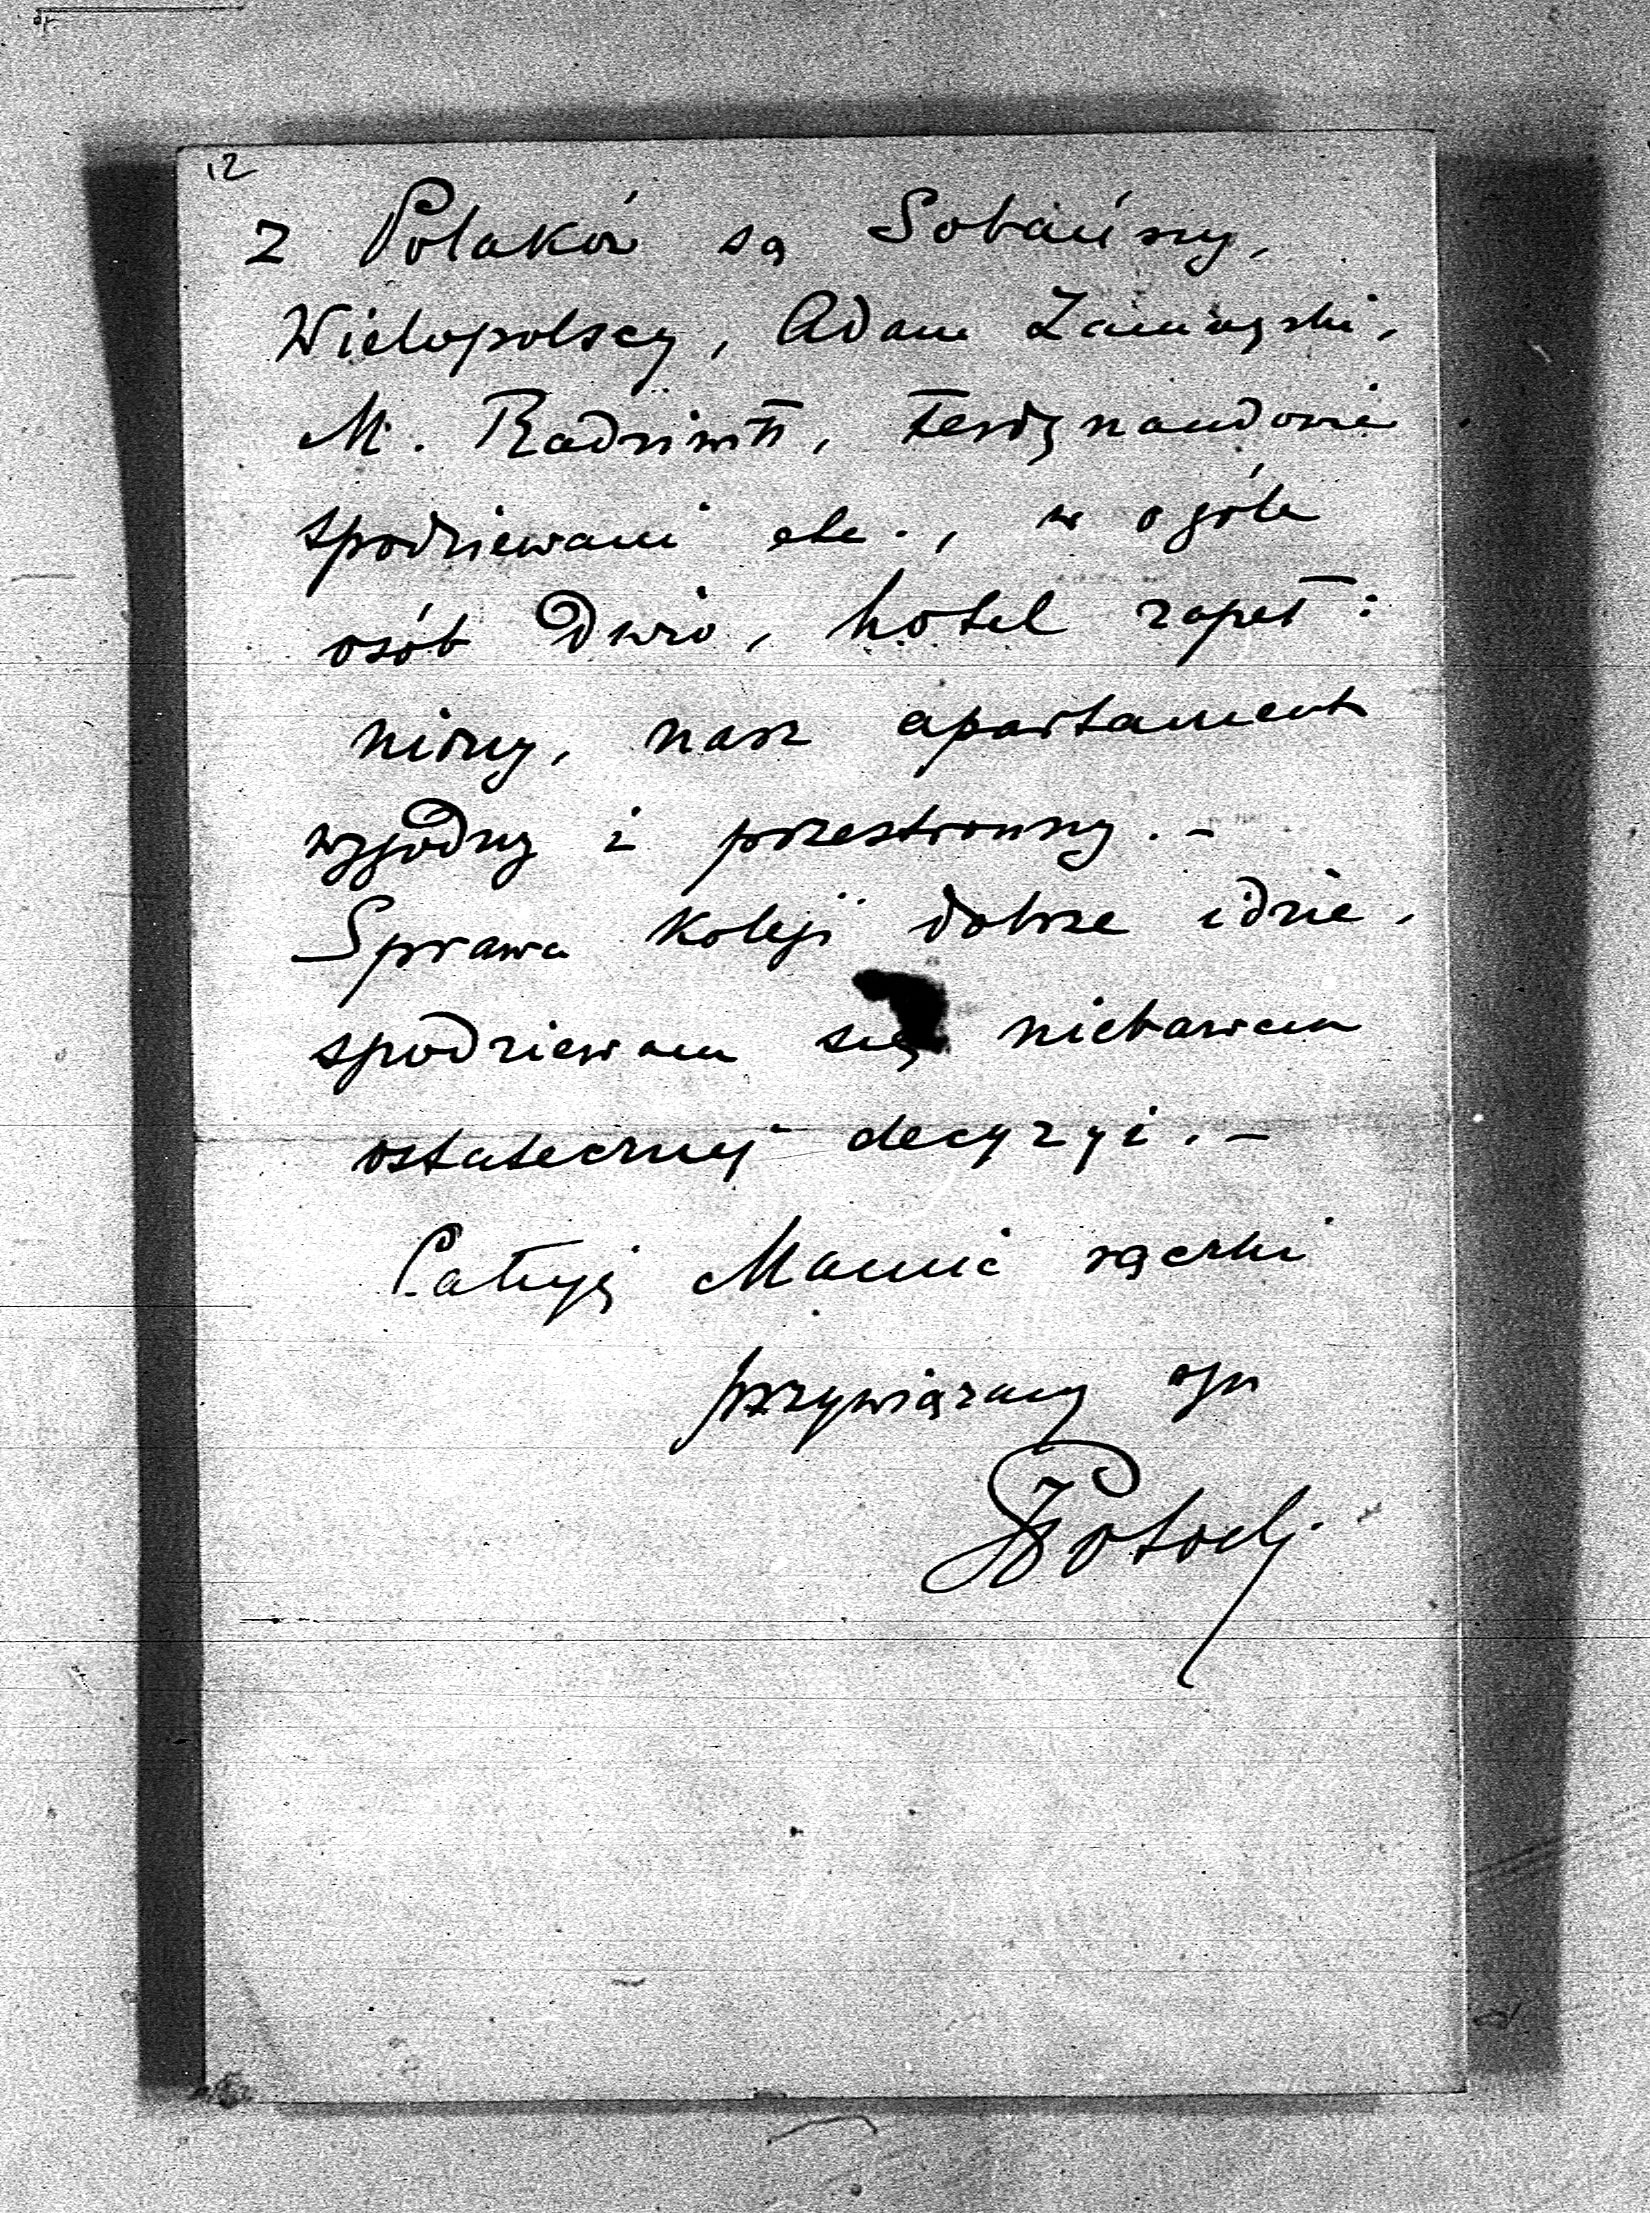 12
z Polaków są Sobańscy,
Wielopolscy, Adam Zamoyski,
M. Radziwiłł, Ferdynandowie
spodziewani etc., w ogóle
osób dużo, hotel zapeł:
niony, nasz apartament
wygodny i przestronny. –
Sprawa koleji dobrze idzie,
spodziewam się niebawem
ostatecznej decyzyi. –
Całuję Mamie rączki
przywiązany syn
Potocki